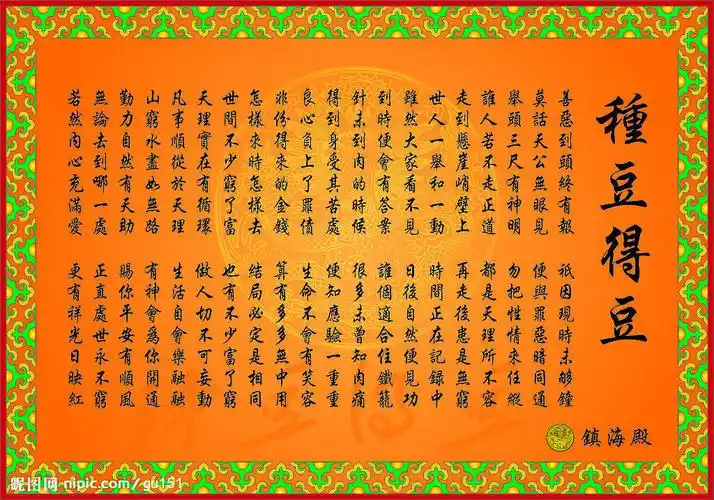 種豆得豆
善惡到頭終有報 祇因現時未够鐘
莫話天公無眼見 便與罪惡暗同通
舉頭三尺有神明 勿把性情來任縱
誰人若不走正道 都是天理所不容
走到懸崖峭壁上 再走後患是無窮
世人一舉和一動 時間正在記錄中
雖然大家看不見 日後自然便見功
到時便會有答案 誰個適合住鐵籠
針未到肉的時候 很多未曾知肉痛
得到身受其苦處 便知應驗一重重
良心負上了罪債 生命不會有笑容
非份得來的金錢 算有多多無中用
怎樣來時怎樣去 結局必定是相同
世間不少窮了富 也有不少富了窮
天理實在有循環 做人切不可妄動
凡事順從於天理 生活自會樂融融
山窮水盡如無路 有神會為你開通
勤力自然有天助 賜你平安有順風
無論去到哪一處 正直處世永不窮
若然內心充滿愛 更有祥光日映紅
鎮海殿
昵图网 nipic.com/gu151